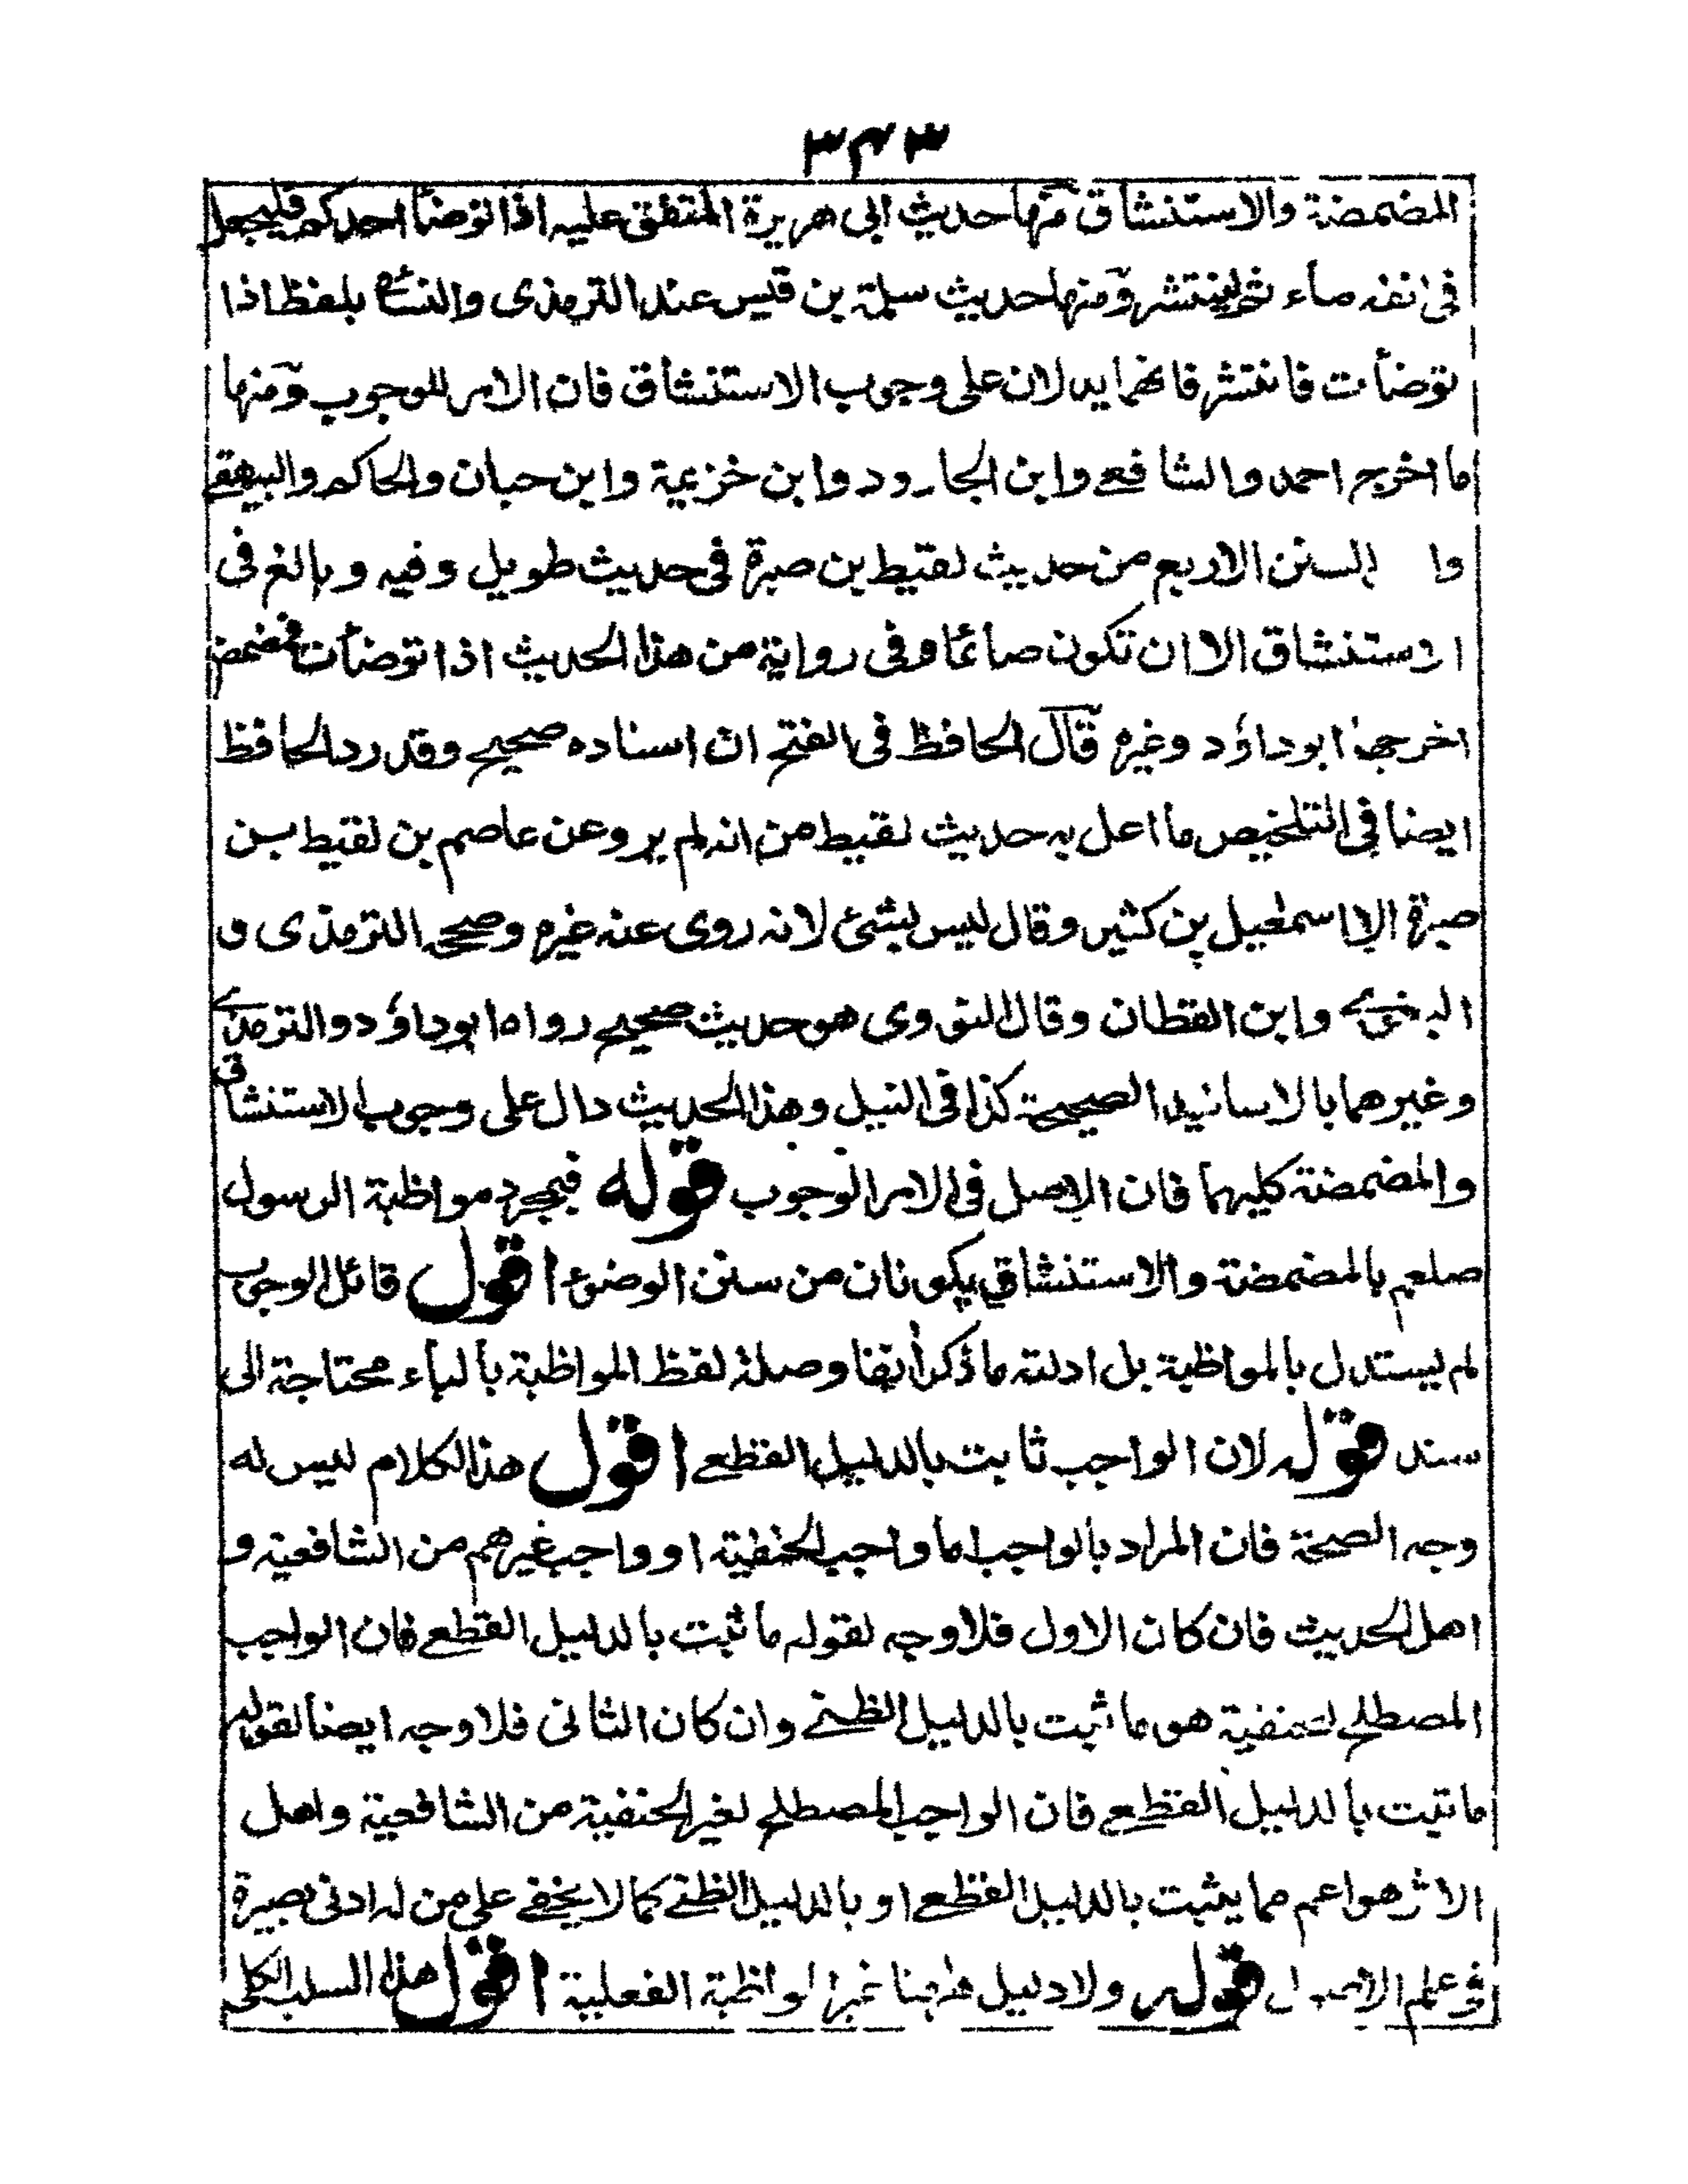 ٣٤٣
المضمضة والاستنشاق منها حديث ابى هريرة المتفق عليه اذا توضأ احدكم فليجعل
فى انفه ماء ثم لينتثر ومنها حديث سلمة بن قيس عند الترمذى والنسائے بلفظ اذا
توضأت فانتثر فانهما يدلان على وجوب الاستنشاق فان الامر للوجوب ومنها
ما اخرج احمد والشافعے وابن الجارود وابن خزيمة وابن حبان والحاكم والبيهقے
وا السنن الاربع من حديث لقيط بن صبرة فى حديث طويل وفيه وبالغ فى
الاستنشاق الا ان تكون صائما وفى رواية من هذا الحديث اذا توضأت فمضمض
اخرجها ابو داؤد وغيره قال الحافظ فى الفتح ان اسناده صحيح وقد رد الحافظ
ايضا فى التلخيص ما اعل به حديث لقيط من انه لم يرو عن عاصم بن لقيط بن
صبرة الا اسمعيل بن كثير وقال ليس بشئ لانه روى عنه غيره وصححه الترمذى و
البغوے وابن القطان وقال النووى هو حديث صحيح رواه ابو داؤد والترمذے
وغيرهما بالاسانيد الصحيحة كذا فى النيل وهذا الحديث دال على وجوب الاستنشاق
والمضمضة كليهما فان الاصل فى الامر الوجوب قوله فبمجرد مواظبة الرسول
صلعم بالمضمضة والاستنشاق يكونان من سنن الوضوء اقول قائل الوجوب
لم يستدل بالمواظبة بل ادلته ما ذكر أنفا وصلة لفظ المواظبة بالباء محتاجة الى
سند قوله لان الواجب ثابت بالدليل القطعے اقول هذا الكلام ليس له
وجه الصحة فان المراد بالواجب اما واجب الحنفية او واجب غيرهم من الشافعية و
اهل الحديث فان كان الاول فلا وجه لقوله ما ثبت بالدليل القطعے فان الواجب
المصطلح لحنفية هو ما ثبت بالدليل الظنے وان كان الثانى فلا وجه ايضا لقوله
ما ثبت بالدليل القطعے فان الواجب المصطلح لغير الحنفية من الشافعية واهل
الاثر هو اعم مما يثبت بالدليل القطعے او بالدليل الظنے كما لا يخفے على من له ادنى بصيرة
فى علم الاصول قوله ولا دليل ههنا غير المواظبة الفعلية اقول هذا السلب الكلى